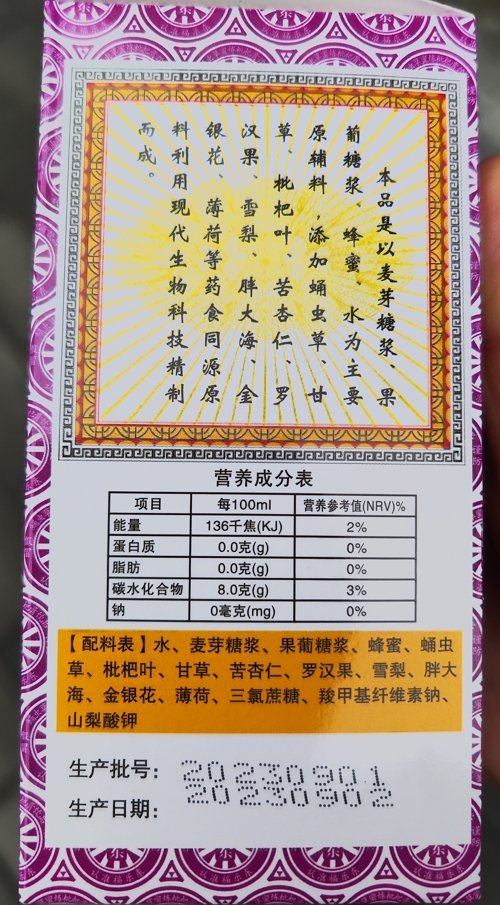 本品是以麦芽糖浆、果
葡糖浆、蜂蜜、水为主要
原辅料,添加蛹虫草、甘
草、枇杷叶、苦杏仁、罗
汉果、雪梨、胖大海、金
银花、薄荷等药食同源原
料利用现代生物科技精制
而成。
营养成分表
项目 每100ml 营养参考值(NRV)%
能量 136千焦(KJ) 2%
蛋白质 0.0克(g) 0%
脂肪 0.0克(g) 0%
碳水化合物 8.0克(g) 3%
钠 0毫克(mg) 0%
【配料表】水、麦芽糖浆、果葡糖浆、蜂蜜、蛹虫
草、枇杷叶、甘草、苦杏仁、罗汉果、雪梨、胖大
海、金银花、薄荷、三氯蔗糖、羧甲基纤维素钠、
山梨酸钾
生产批号：20230901
生产日期：20230902